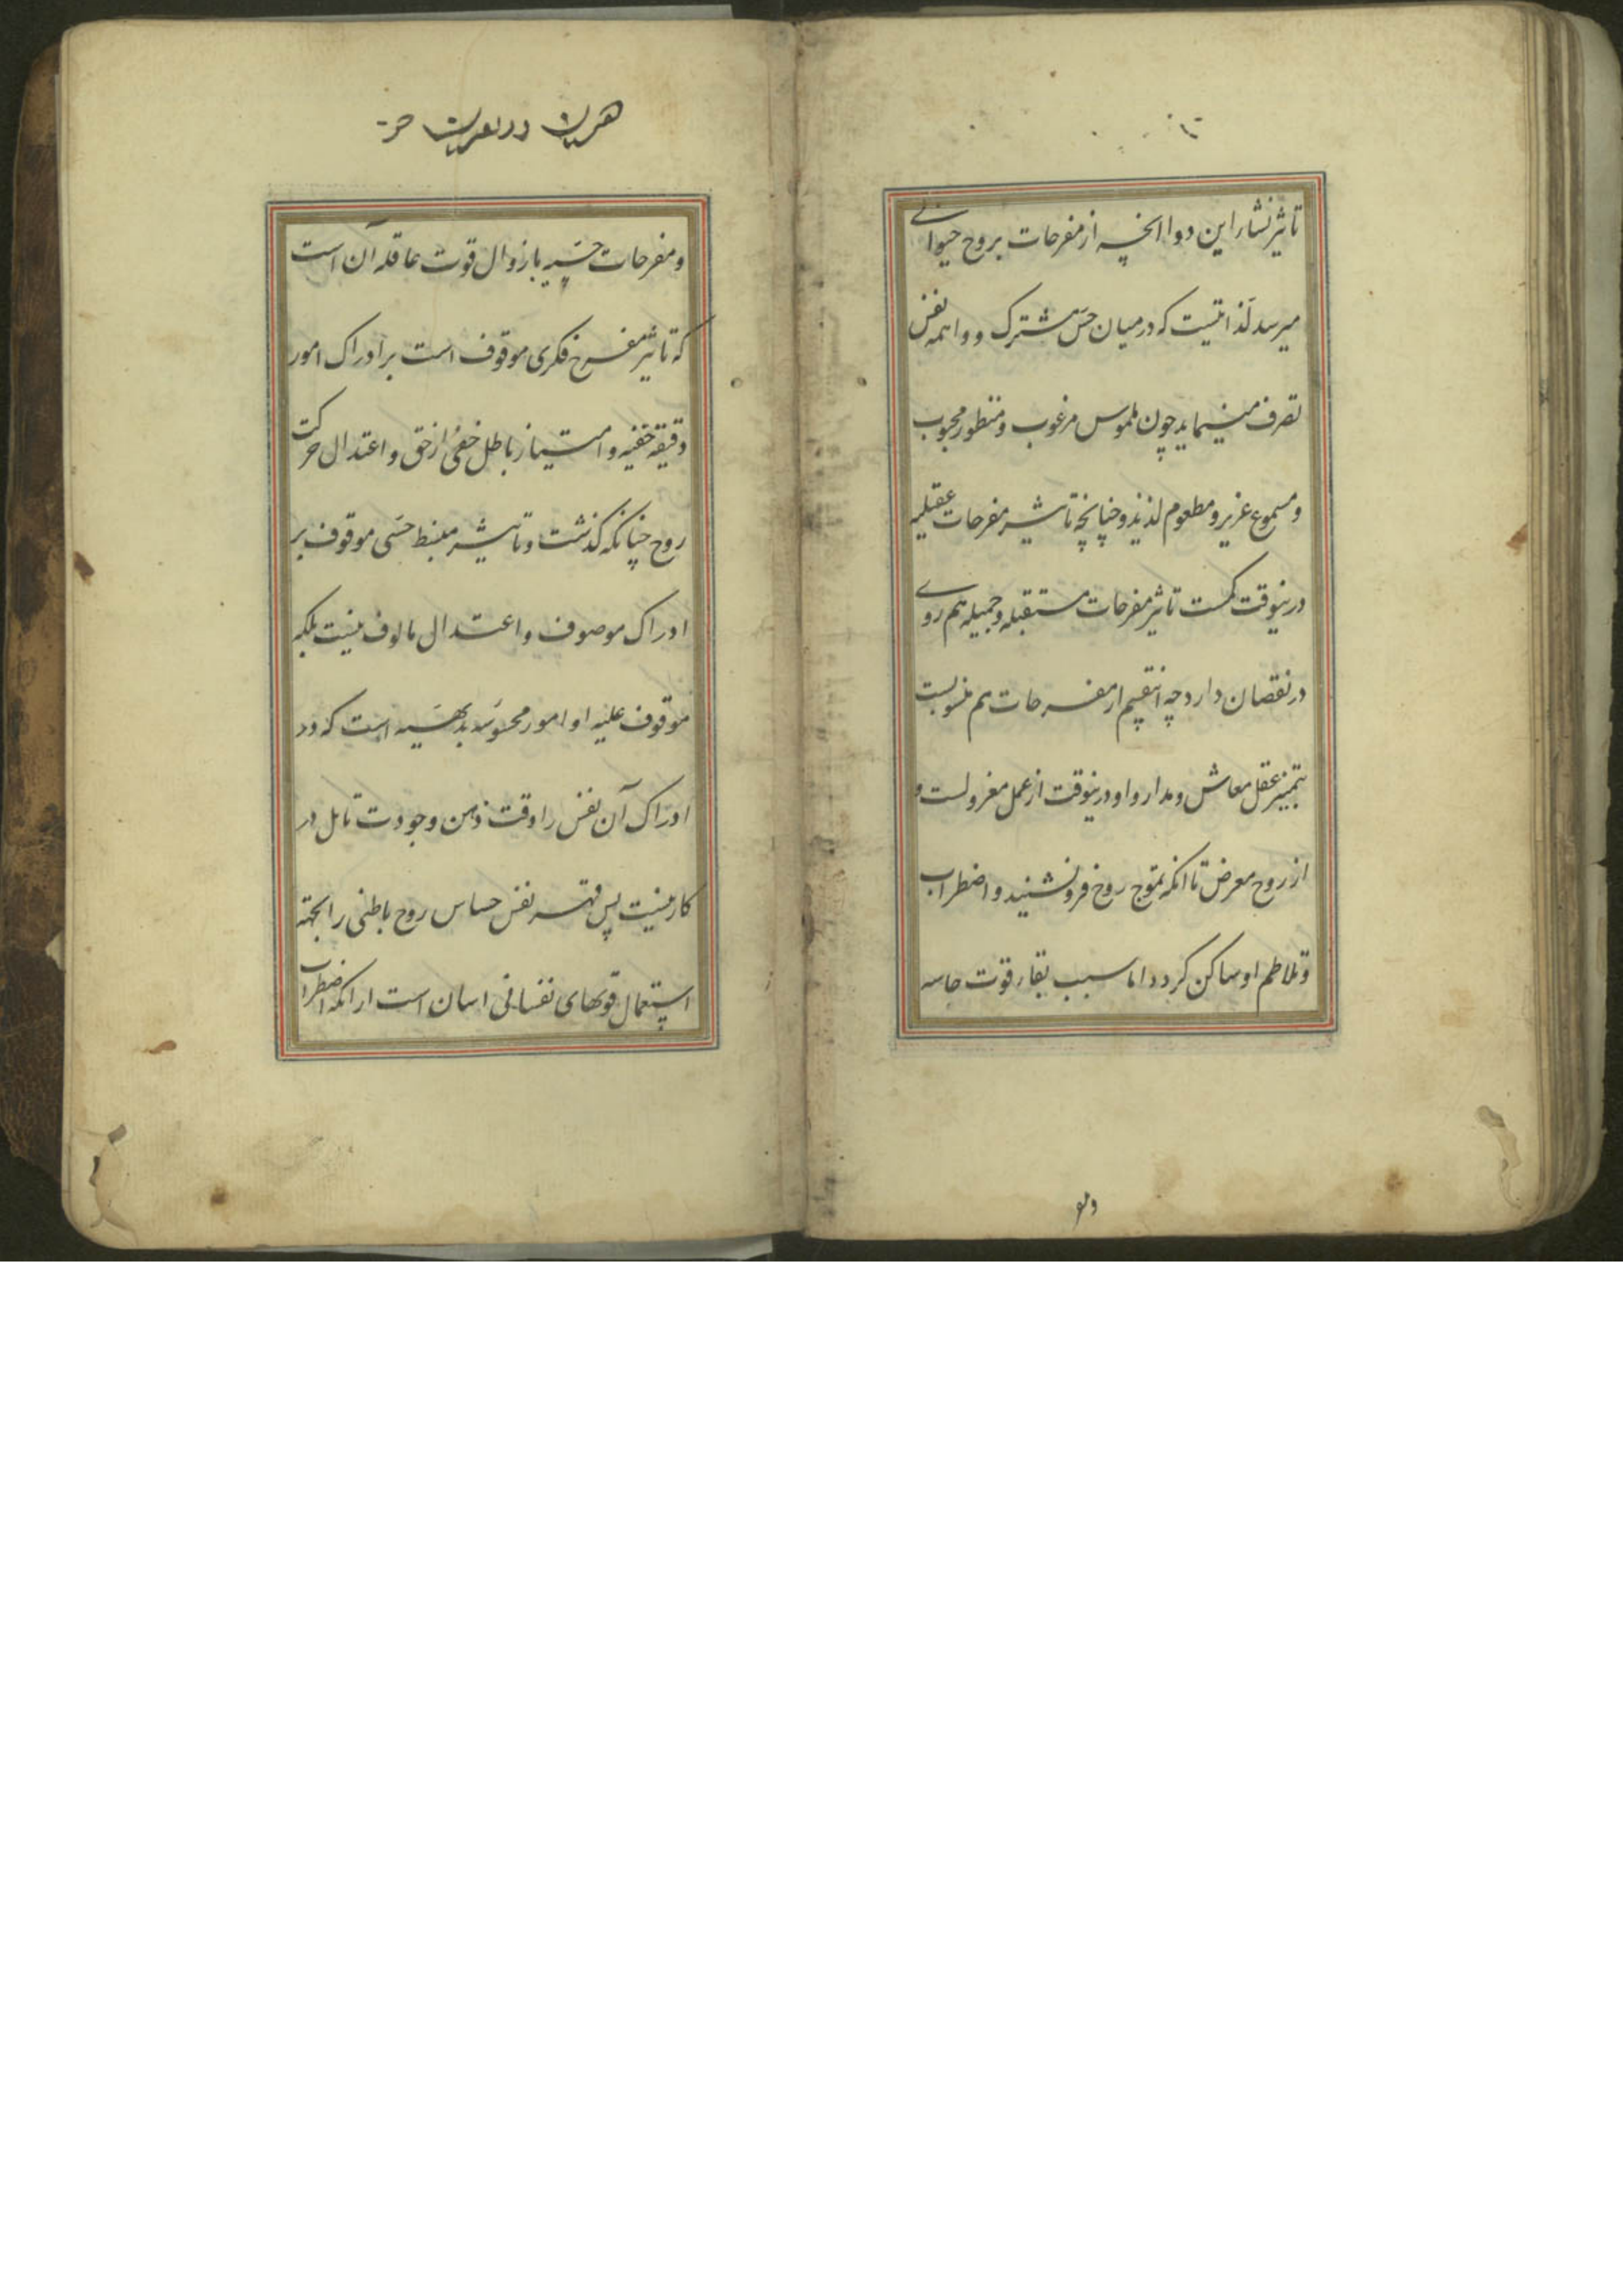 تاثیر نشار این دوا انچه از مفرحات بروح حیوانی
میرسد لذاتیست که در میان حس مشترک و واهمه نفس
تصرف مینماید چون ملموس مرغوب و منظور محبوب
و مسموع عزیز و مطعوم لذیذ و چنانچه تاثیر مفرحات عقلیه
درینوقت کمست تاثیر مفرحات مستقبله و جمیله هم روی
در نقصان دارد چه اینقسم از مفرحات هم منسوبست
بتمییز عقل معاش و مدار و او درینوقت از عمل معزولست و
از روح معرض تا انکه تموج روح فرو نشیند و اضطراب
و تلاطم او ساکن کردد اما سبب بقاء قوت حاسه
و مفرحات حسیه با زوال قوت عاقله آن است
که تاثیر مفرح فکری موقوف است بر ادراک امور
دقیقه خفیه و امتیاز باطل خفی از حق و اعتدال حرکت
روح چنانکه کذشت و تاثیر منبسط حسی موقوف بر
ادراک موصوف و اعتدال مالوف نیست بلکه
موقوف علیه او امور محسوسه بدیهیه است که در
ادراک آن نفس را دقت ذهن و جودت تامل در
کار نیست پس قهر نفس حساس روح باطنی را بجهته
استعمال قوتهای نفسانی اسان است از انکه اضطراب